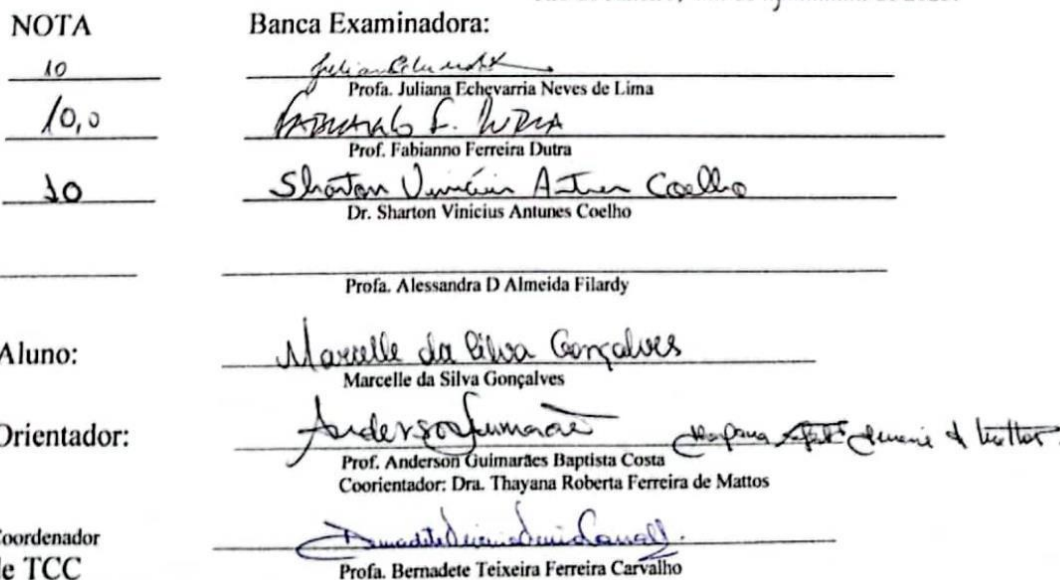 NOTA Banca Examinadora:
10
Profa. Juliana Echevarria Neves de Lima
10,0 Fabianno F. Dutra
Prof. Fabianno Ferreira Dutra
10 Sharton Vinicius Antunes Coelho
Dr. Sharton Vinicius Antunes Coelho
Profa. Alessandra D Almeida Filardy
Aluno: Marcelle da Silva Gonçalves
Marcelle da Silva Gonçalves
Orientador: Anderson Guimarães
Prof. Anderson Guimarães Baptista Costa
Coorientador: Dra. Thayana Roberta Ferreira de Mattos
Coordenador
de TCC
Profa. Bernadete Teixeira Ferreira Carvalho